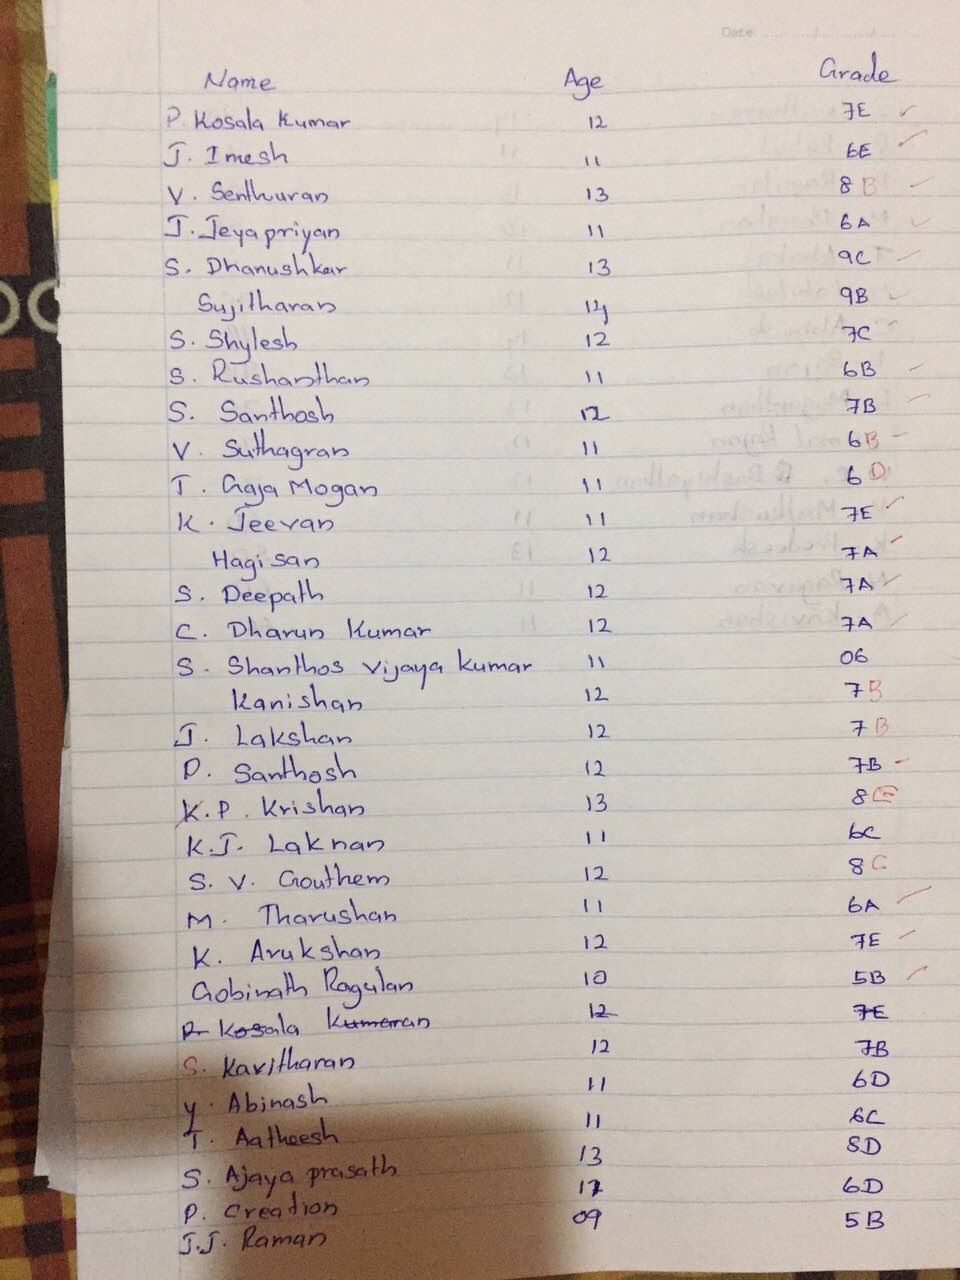 Date
Name Age Grade
P. Kosala Kumar 12 7E
J. Imesh 11 6E
V. Senthuran 13 8B
J. Jeyapriyan 11 6A
S. Dhanushkar 13 9C
Sujitharan 14 9B
S. Shylesh 12 7C
S. Rushanthan 11 6B
S. Santhosh 12 7B
V. Suthagran 11 6B
T. Gaja Mogan 11 6D
K. Jeevan 11 7E
Hagisan 12 7A
S. Deepath 12 7A
C. Dharun Kumar 12 7A
S. Shanthos Vijaya kumar 11 06
Kanishan 12 7B
J. Lakshan 12 7B
D. Santhosh 12 7B
K.P. Krishan 13 8E
K.J. Laknan 11 6C
S. V. Gouthem 12 8C
M. Tharushan 11 6A
K. Arukshan 12 7E
Gobinath Ragulan 10 5B
P. Kosala Kumaran 12 7E
S. Kavitharan 12 7B
Y. Abinash 11 6D
T. Aatheesh 11 6C
S. Ajaya prasath 13 8D
P. Creation 12 6D
J.J. Raman 09 5B